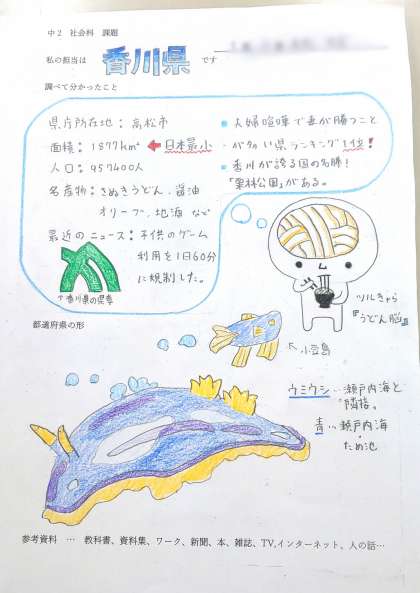 中2 社会科 課題
私の担当は 香川県 です
調べて分かったこと
県庁所在地：高松市
面積：1877km² ← 日本最小
人口：957400人
名産物：さぬきうどん、醤油
オリーブ、地海 など
最近のニュース：子供のゲーム
利用を1日60分
に規制した。
↑香川県の県章
夫婦喧嘩で妻が勝つこと
が多い県ランキング1位！
香川が誇る国の名勝！
「栗林公園」がある。
ツルきゃら
『うどん脳』
都道府県の形
←小豆島
ウミウシ…瀬戸内海と
隣接。
青…瀬戸内海
・ため池
参考資料 … 教科書、資料集、ワーク、新聞、本、雑誌、TV,インターネット、人の話…